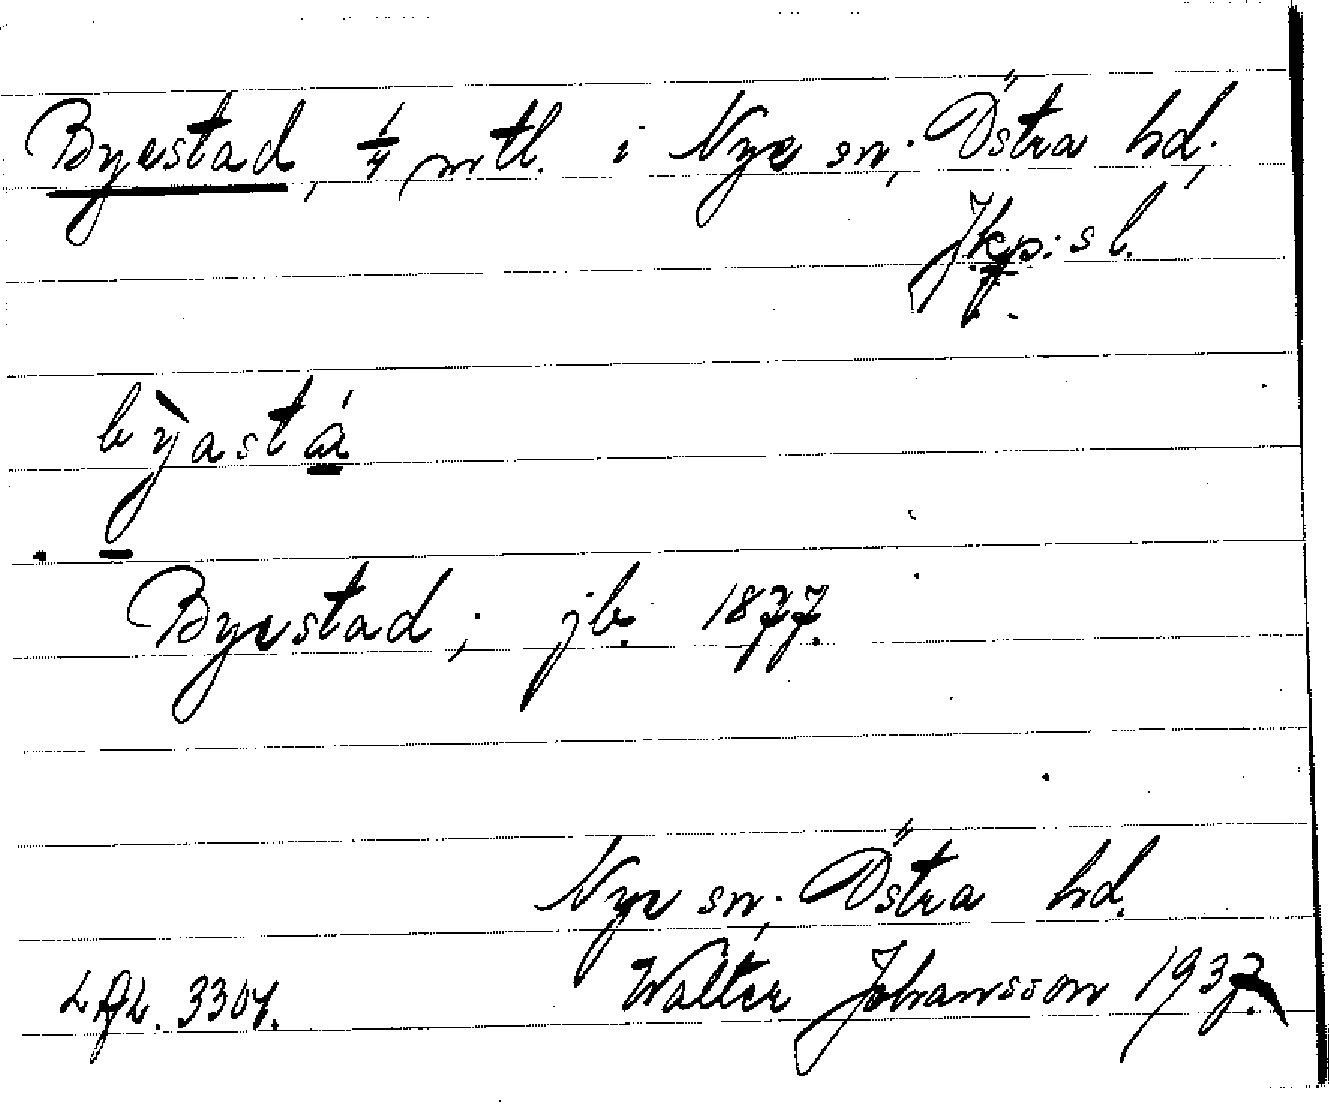 Byestad, 1/4 mtl. i Nye sn, Östra hd,
Jkp:s l.
bỳastá
Byestad; jb. 1877.
Nye sn, Östra hd.
Walter Johansson 1937.